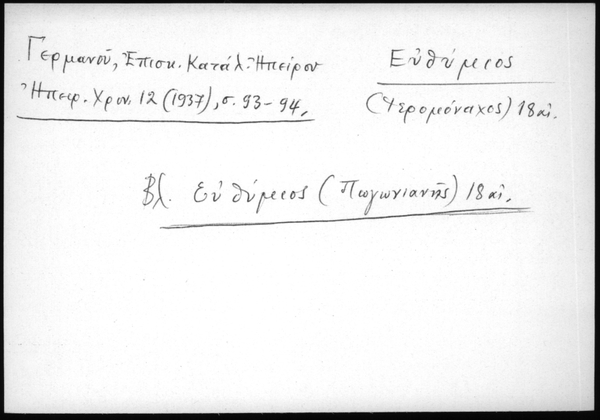 Γερμανοῦ, Ἐπισκ. Κατάλ. Ἠπείρου
Ἠπειρ. Χρον. 12 (1937), σ. 93-94.
Εὐθύμιος
(Ἱερομόναχος) 18 αἰ.
Βλ. Εὐθύμιος (Πωγωνιανῆς) 18 αἰ.